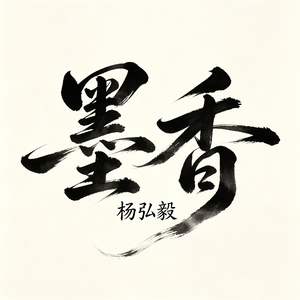 墨香
杨弘毅